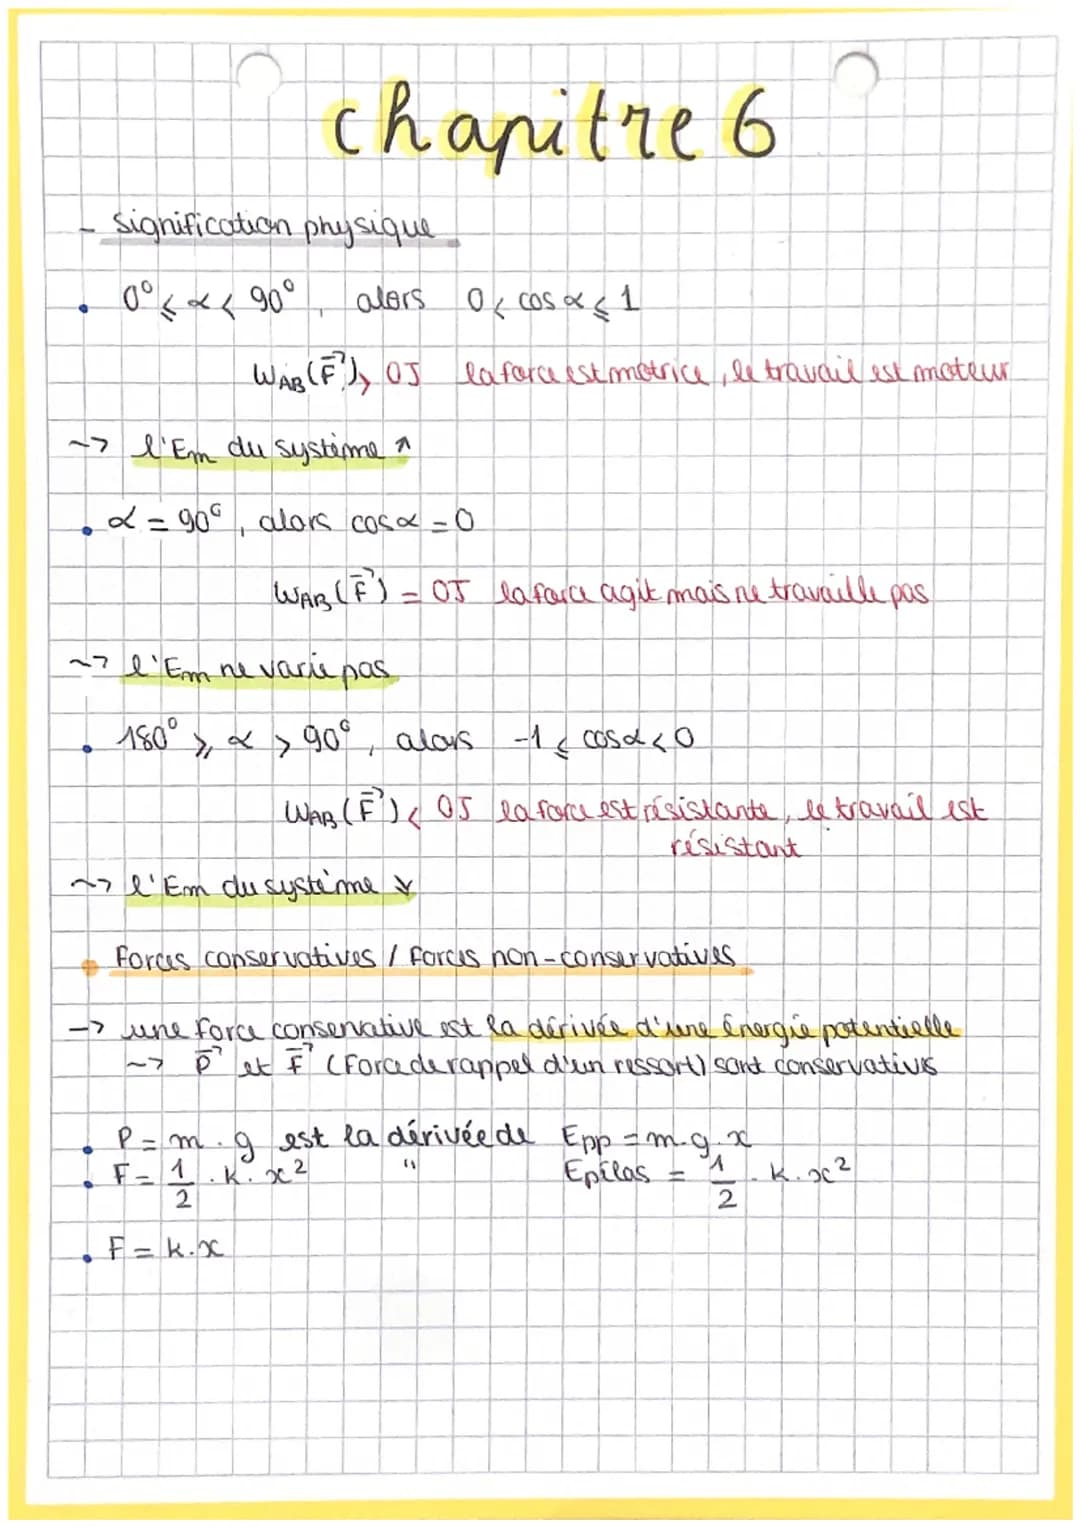 chapitre 6
- signification physique
• 0° ⩽ α < 90°, alors 0 < cos α ⩽ 1
WAB(F⃗) > 0J la force est motrice, le travail est moteur
~> l'Em du système ↗
• α = 90°, alors cos α = 0
WAB(F⃗) = 0J la force agit mais ne travaille pas
~> l'Em ne varie pas
• 180° ⩾ α > 90°, alors -1 ⩽ cos α < 0
WAB(F⃗) < 0J la force est résistante, le travail est
résistant
~> l'Em du système ↘
• Forces conservatives / Forces non-conservatives
-> une force conservative est la dérivée d'une énergie potentielle
~> P⃗ et F⃗ (Force de rappel d'un ressort) sont conservatives
• P = m . g est la dérivée de Epp = m.g.x
• F = 1/2 . k . x² " Epélas = 1/2 . k . x²
• F = k.x